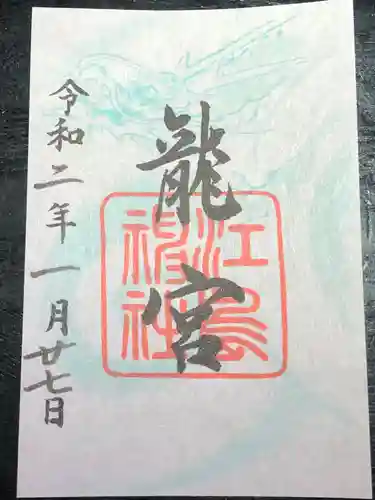 龍宮
江島神社
令和二年一月廿七日